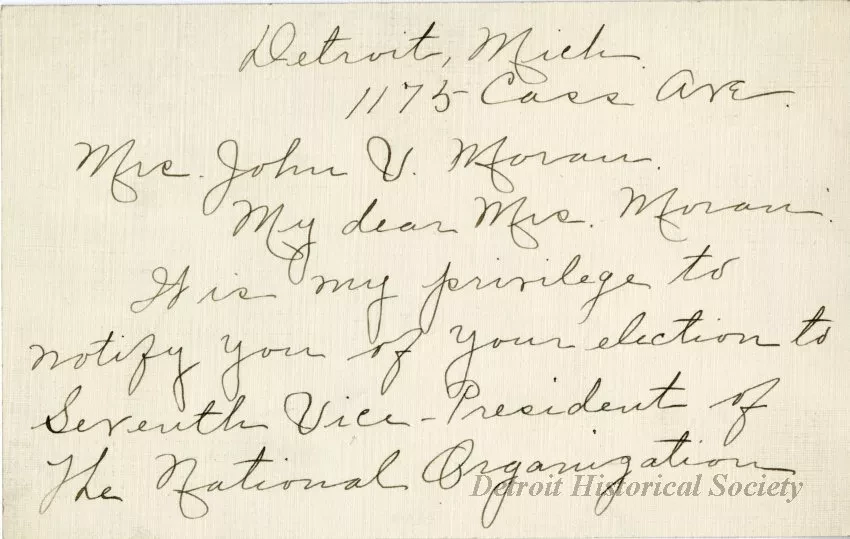 Detroit, Mich.
1175 Cass Ave.
Mrs. John V. Moran.
My dear Mrs. Moran:
It is my privilege to
notify you of your election to
Seventh Vice-President of
The National Organization
Detroit Historical Society